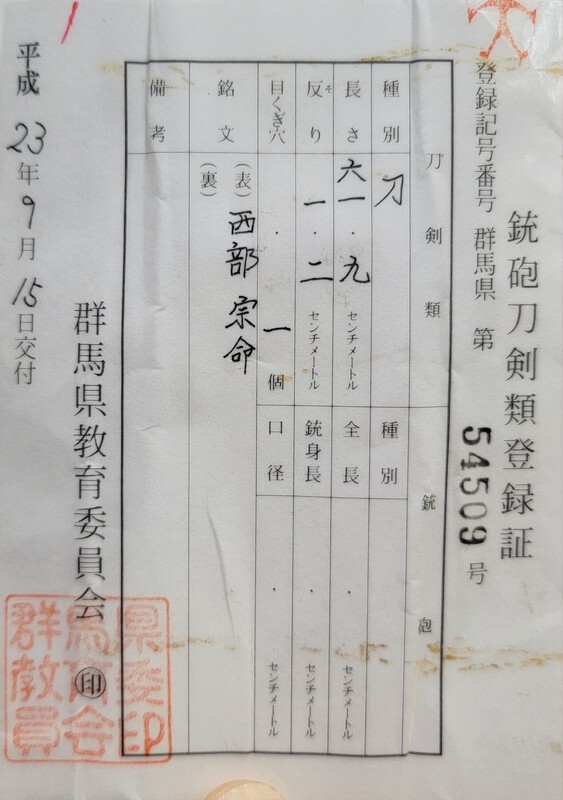 銃砲刀剣類登録証
登録記号番号 群馬県 第 54509 号
刀剣類
種別 刀
長さ 六一・九 センチメートル
反り 一・二 センチメートル
そ
目くぎ穴 一 個
銘文 (表) 西部 宗命
(裏)
備考
銃砲
種別
全長 ・ センチメートル
銃身長 ・ センチメートル
口径 ・ センチメートル
平成 23年 9月 15日交付
群馬県教育委員会 印
県委印
馬育会
群教員